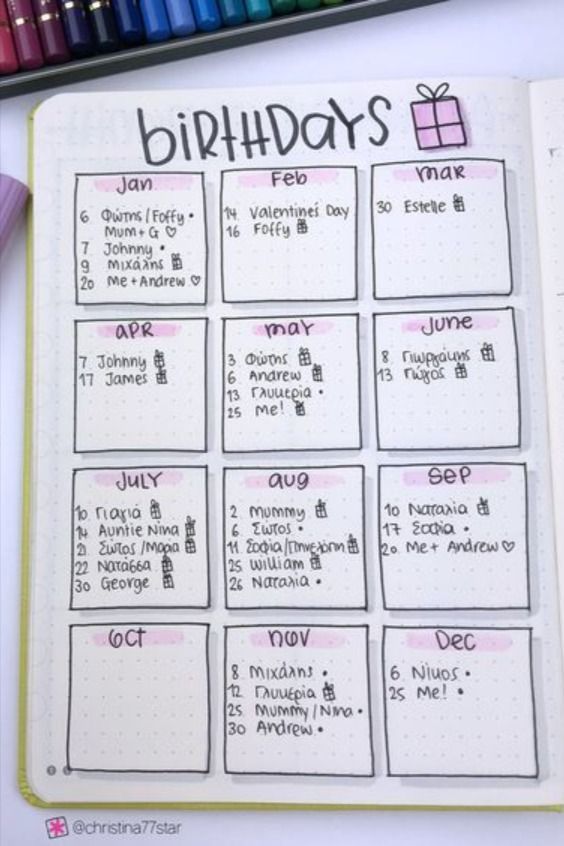 biRtHDaYS
Jan
6 Φώτης/Foffy •
Mum + G ♡
7 Johnny •
9 Μιχάλης
20 Me + Andrew ♡
Feb
14 Valentine's Day
16 Foffy
maR
30 Estelle
apR
7 Johnny
17 James
maY
3 Φώτης
6 Andrew
13 Γλυκερία •
25 Me!
June
8 Γιωργάκης
13 Γιώργος
JULY
10 Γιαγιά
14 Auntie Nina
21 Σώτος/Μαρία
22 Νατάσσα
30 George
aug
2 Mummy
6 Σώτος •
11 Σοφία/Πηνελόπη
25 William
26 Ναταλία •
Sep
10 Ναταλία
17 Σοφία •
20 Me + Andrew ♡
Oct
nov
8 Μιχάλης •
12 Γλυκερία
25 Mummy/Nina •
30 Andrew •
Dec
6 Νίκος •
25 Me! •
@christina77star